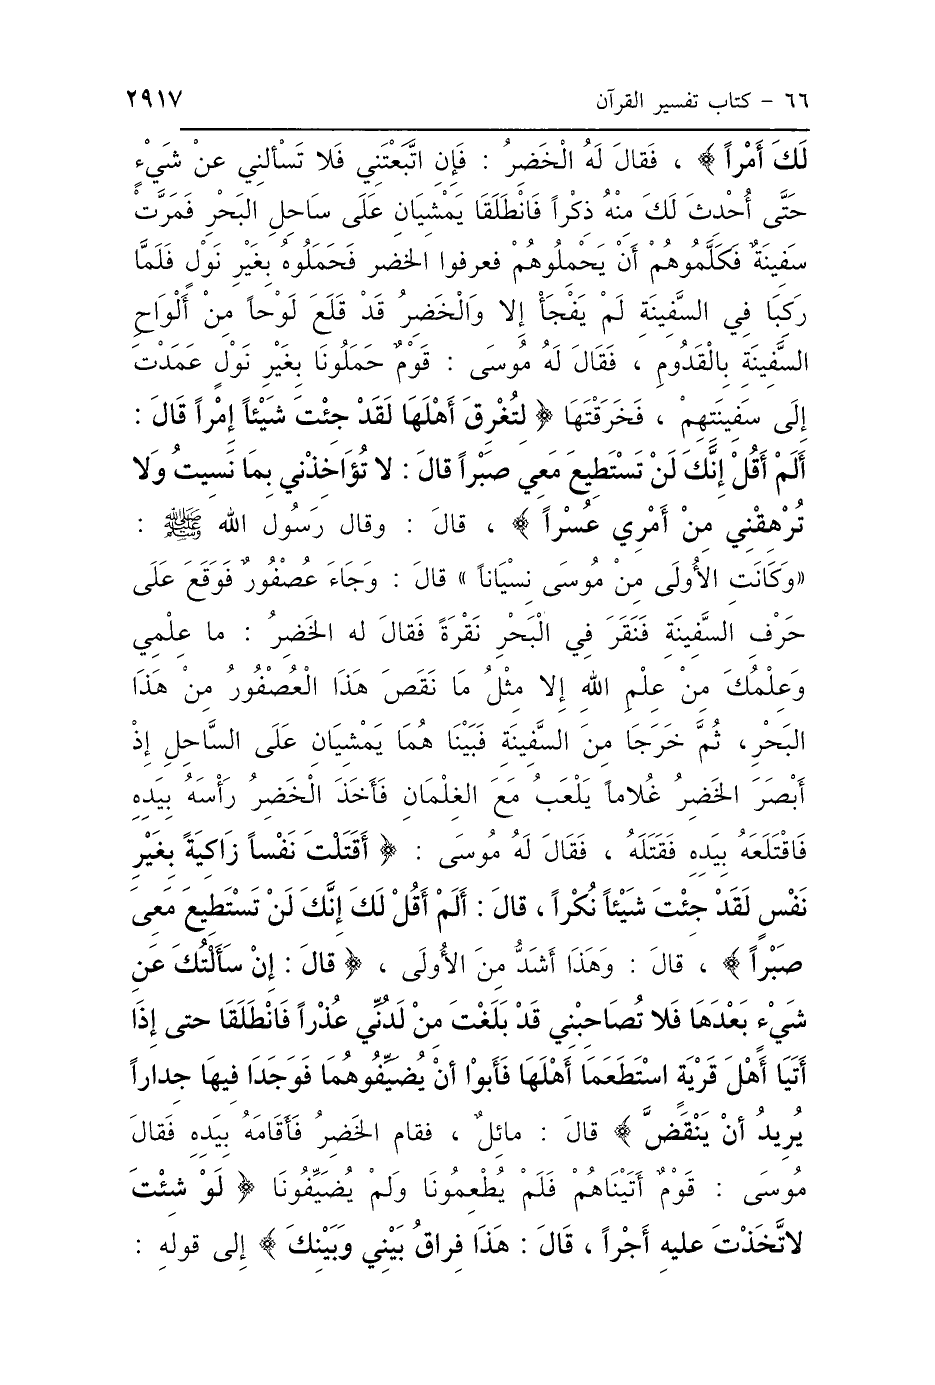 ٦٦ – كتاب تفسير القرآن ٢٩١٧
لَكَ أَمْراً ﴾ ، فَقَالَ لَهُ الْخَضِرُ : فَإِنِ اتَّبَعْتَنِي فَلا تَسْأَلْنِي عَنْ شَيْءٍ
حَتَّى أُحْدِثَ لَكَ مِنْهُ ذِكْراً فَانْطَلَقَا يَمْشِيَانِ عَلَى سَاحِلِ البَحْرِ فَمَرَّتْ
سَفِينَةٌ فَكَلَّمُوهُمْ أَنْ يَحْمِلُوهُمْ فعرفوا الخضر فَحَمَلُوهُ بِغَيْرِ نَوْلٍ فَلَمَّا
رَكِبَا فِي السَّفِينَةِ لَمْ يَفْجَأْ إِلا وَالْخَضِرُ قَدْ قَلَعَ لَوْحاً مِنْ أَلْوَاحِ
السَّفِينَةِ بِالْقَدُومِ ، فَقَالَ لَهُ مُوسَى : قَوْمٌ حَمَلُونَا بِغَيْرِ نَوْلٍ عَمَدْتَ
إِلَى سَفِينَتِهِمْ ، فَخَرَقْتَهَا ﴿ لِتُغْرِقَ أَهْلَهَا لَقَدْ جِئْتَ شَيْئاً إِمْراً قَالَ :
أَلَمْ أَقُلْ إِنَّكَ لَنْ تَسْتَطِيعَ مَعِي صَبْراً قالَ : لا تُؤَاخِذْنِي بِمَا نَسِيتُ وَلا
تُرْهِقْنِي مِنْ أَمْرِي عُسْراً ﴾ ، قالَ : وقال رَسُول الله ﷺ :
«وَكَانَتِ الأُولَى مِنْ مُوسَى نِسْيَاناً » قالَ : وَجَاءَ عُصْفُورٌ فَوَقَعَ عَلَى
حَرْفِ السَّفِينَةِ فَنَقَرَ فِي الْبَحْرِ نَقْرَةً فَقالَ له الخَضِرُ : ما عِلْمِي
وَعِلْمُكَ مِنْ عِلْمِ اللهِ إِلا مِثْلُ مَا نَقَصَ هَذَا الْعُصْفُورُ مِنْ هَذَا
البَحْرِ، ثُمَّ خَرَجَا مِنَ السَّفِينَةِ فَبَيْنَا هُمَا يَمْشِيَانِ عَلَى السَّاحِلِ إِذْ
أَبْصَرَ الخَضِرُ غُلاماً يَلْعَبُ مَعَ الغِلْمَانِ فَأَخَذَ الْخَضِرُ رَأْسَهُ بِيَدِهِ
فَاقْتَلَعَهُ بِيَدِهِ فَقَتَلَهُ ، فَقالَ لَهُ مُوسَى : ﴿ أَقَتَلْتَ نَفْساً زَاكِيَةً بِغَيْرِ
نَفْسٍ لَقَدْ جِئْتَ شَيْئاً نُكْراً ، قالَ : أَلَمْ أَقُلْ لَكَ إِنَّكَ لَنْ تَسْتَطِيعَ مَعِىَ
صَبْراً ﴾ ، قالَ : وَهَذَا أَشَدُّ مِنَ الأُولَى ، ﴿ قالَ : إِنْ سَأَلْتُكَ عَنِ
شَيْءٍ بَعْدَهَا فَلا تُصَاحِبْنِي قَدْ بَلَغْتَ مِنْ لَدُنِّي عُذْراً فَانْطَلَقَا حتى إِذَا
أَتَيَا أَهْلَ قَرْيَةٍ اسْتَطْعَمَا أَهْلَهَا فَأَبَوْا أنْ يُضَيِّفُوهُمَا فَوَجَدَا فيهَا جِداراً
يُرِيدُ أنْ يَنْقَضَّ ﴾ قالَ : مائِلٌ ، فقام الخَضِرُ فَأَقَامَهُ بِيَدِهِ فَقالَ
مُوسَى : قَوْمٌ أَتَيْنَاهُمْ فَلَمْ يُطْعِمُونَا وَلَمْ يُضَيِّفُونَا ﴿ لَوْ شِئْتَ
لاتَّخَذْتَ عليهِ أَجْراً ، قَالَ : هَذَا فِراقُ بَيْنِي وَبَيْنِكَ ﴾ إلى قولهِ :